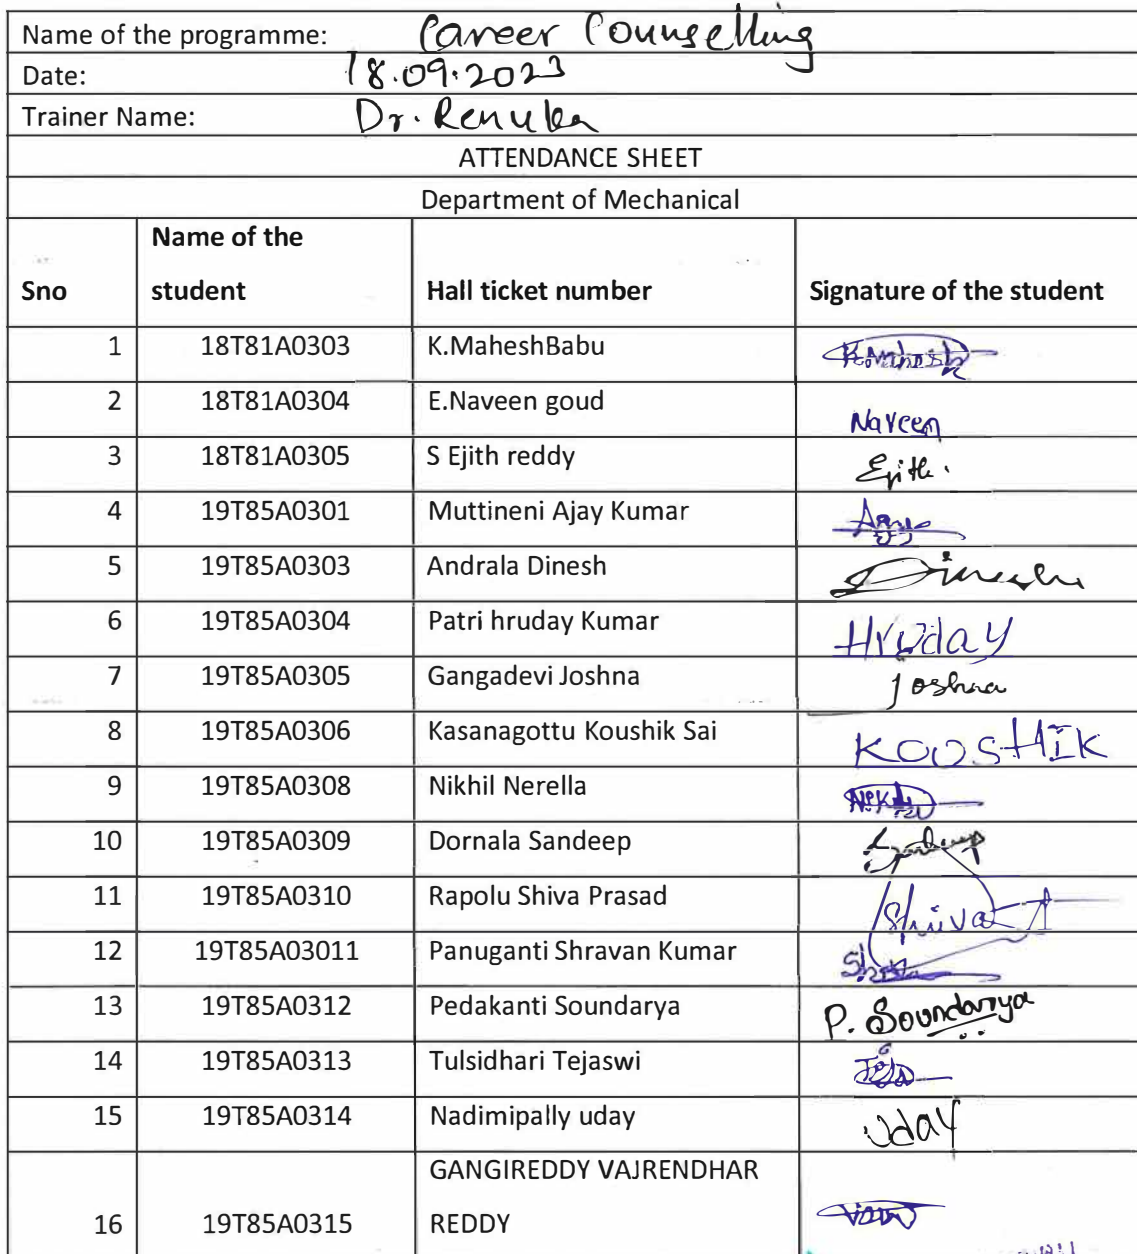 Name of the programme: Career Counselling
Date: 18.09.2023
Trainer Name: Dr. Renuka
ATTENDANCE SHEET
Department of Mechanical
Sno Name of the student Hall ticket number Signature of the student
1 18T81A0303 K.MaheshBabu
2 18T81A0304 E.Naveen goud Naveen
3 18T81A0305 S Ejith reddy Ejith.
4 19T85A0301 Muttineni Ajay Kumar
5 19T85A0303 Andrala Dinesh Dinesh
6 19T85A0304 Patri hruday Kumar Hruday
7 19T85A0305 Gangadevi Joshna Joshna
8 19T85A0306 Kasanagottu Koushik Sai KOUSHIK
9 19T85A0308 Nikhil Nerella
10 19T85A0309 Dornala Sandeep
11 19T85A0310 Rapolu Shiva Prasad Shiva
12 19T85A03011 Panuganti Shravan Kumar
13 19T85A0312 Pedakanti Soundarya P. Soundarya
14 19T85A0313 Tulsidhari Tejaswi
15 19T85A0314 Nadimipally uday Uday
16 19T85A0315 GANGIREDDY VAJRENDHAR REDDY